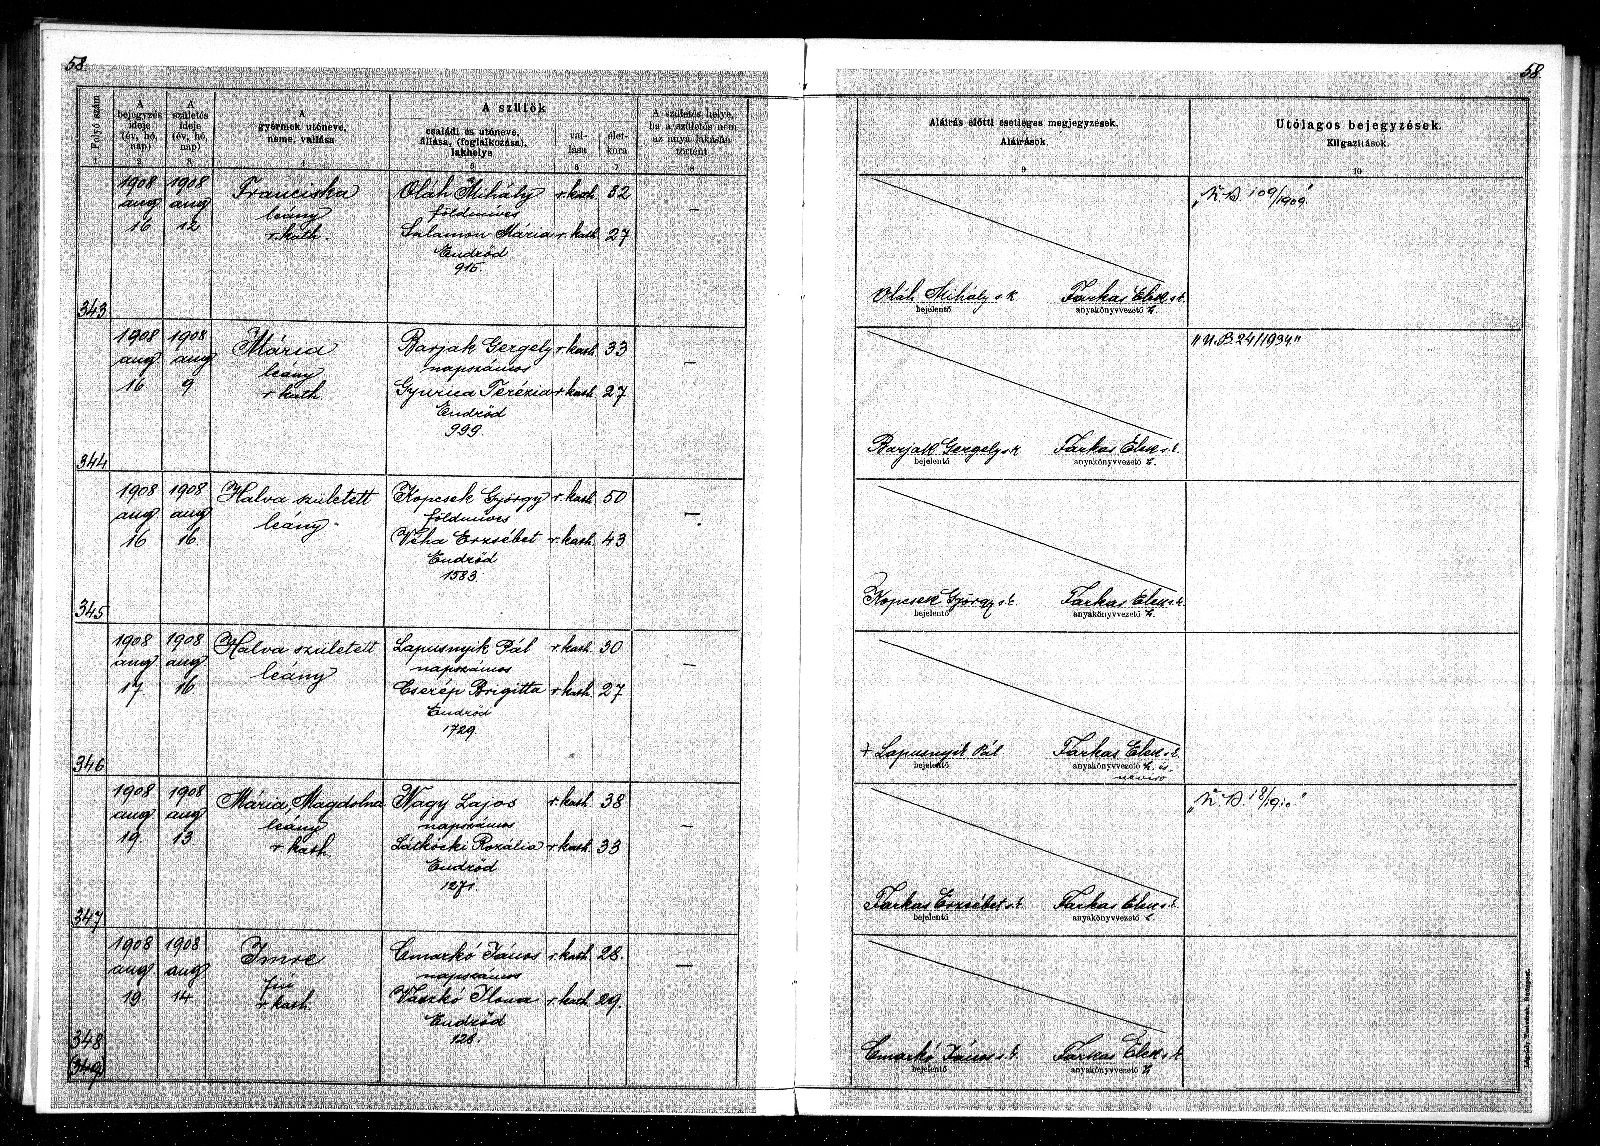 58
58
Folyó szám
A bejegyzés ideje (év, hó, nap)
A születés ideje (év, hó, nap)
A gyermek utóneve, neme, vallása
A szülők
családi és utóneve, állása, (foglalkozása), lakhelye
vallása
életkora
A születés helye, ha a születés nem az anya lakhelyén történt
Aláírás előtti esetleges megjegyzések.
Aláírások.
Utólagos bejegyzések.
Kiigazítások.
1 2 3 4 5 6 7 8 9 10
343
1908 aug 16
1908 aug 12
Franciska
leány
r. kath.
Oláh Mihály r. kath. 32
földműves
Salamon Mária r. kath. 27
Endrőd
915.
—
Oláh Mihály s k
bejelentő
Farkas Elek s. k.
anyakönyvvezető h.
109/1909"
344
1908 aug 16
1908 aug 9
Mária
leány
r kath.
Barják Gergely r. kath. 33
napszámos
Gyuricza Terézia r. kath. 27
Endrőd
999.
—
Barják Gergely s k
bejelentő
Farkas Elek s. k.
anyakönyvvezető h.
"U. B 24/1934"
345
1908 aug 16
1908 aug 16.
Halva született
leány
Kopcsek György r. kath. 50
földműves
Véha Erzsébet r. kath. 43
Endrőd
1583.
—
Kopcsek György s. k.
bejelentő
Farkas Elek s. k.
anyakönyvvezető h.
346
1908 aug 17
1908 aug 16
Halva született
leány
Lapusnyik Pál r. kath. 30
napszámos
Cserép Brigitta r. kath. 27
Endrőd
1729.
—
+ Lapusnyik Pál
bejelentő
Farkas Elek s. k.
anyakönyvvezető h. és
névíró
347
1908 aug 19.
1908 aug 13.
Mária, Magdolna
leány
r kath.
Nagy Lajos r. kath. 38
napszámos
Látkóczki Rozália r. kath. 33
Endrőd
1271.
—
Farkas Erzsébet s. k.
bejelentő
Farkas Elek s. k.
anyakönyvvezető h.
18/910"
348
(349)
1908 aug 19
1908 aug 14
Imre
fiú
r kath.
Csmarkó János r. kath. 28.
napszámos
Vaszkó Ilona r. kath. 29.
Endrőd
128.
—
Csmarkó János s. k.
bejelentő
Farkas Elek s. k.
anyakönyvvezető h.